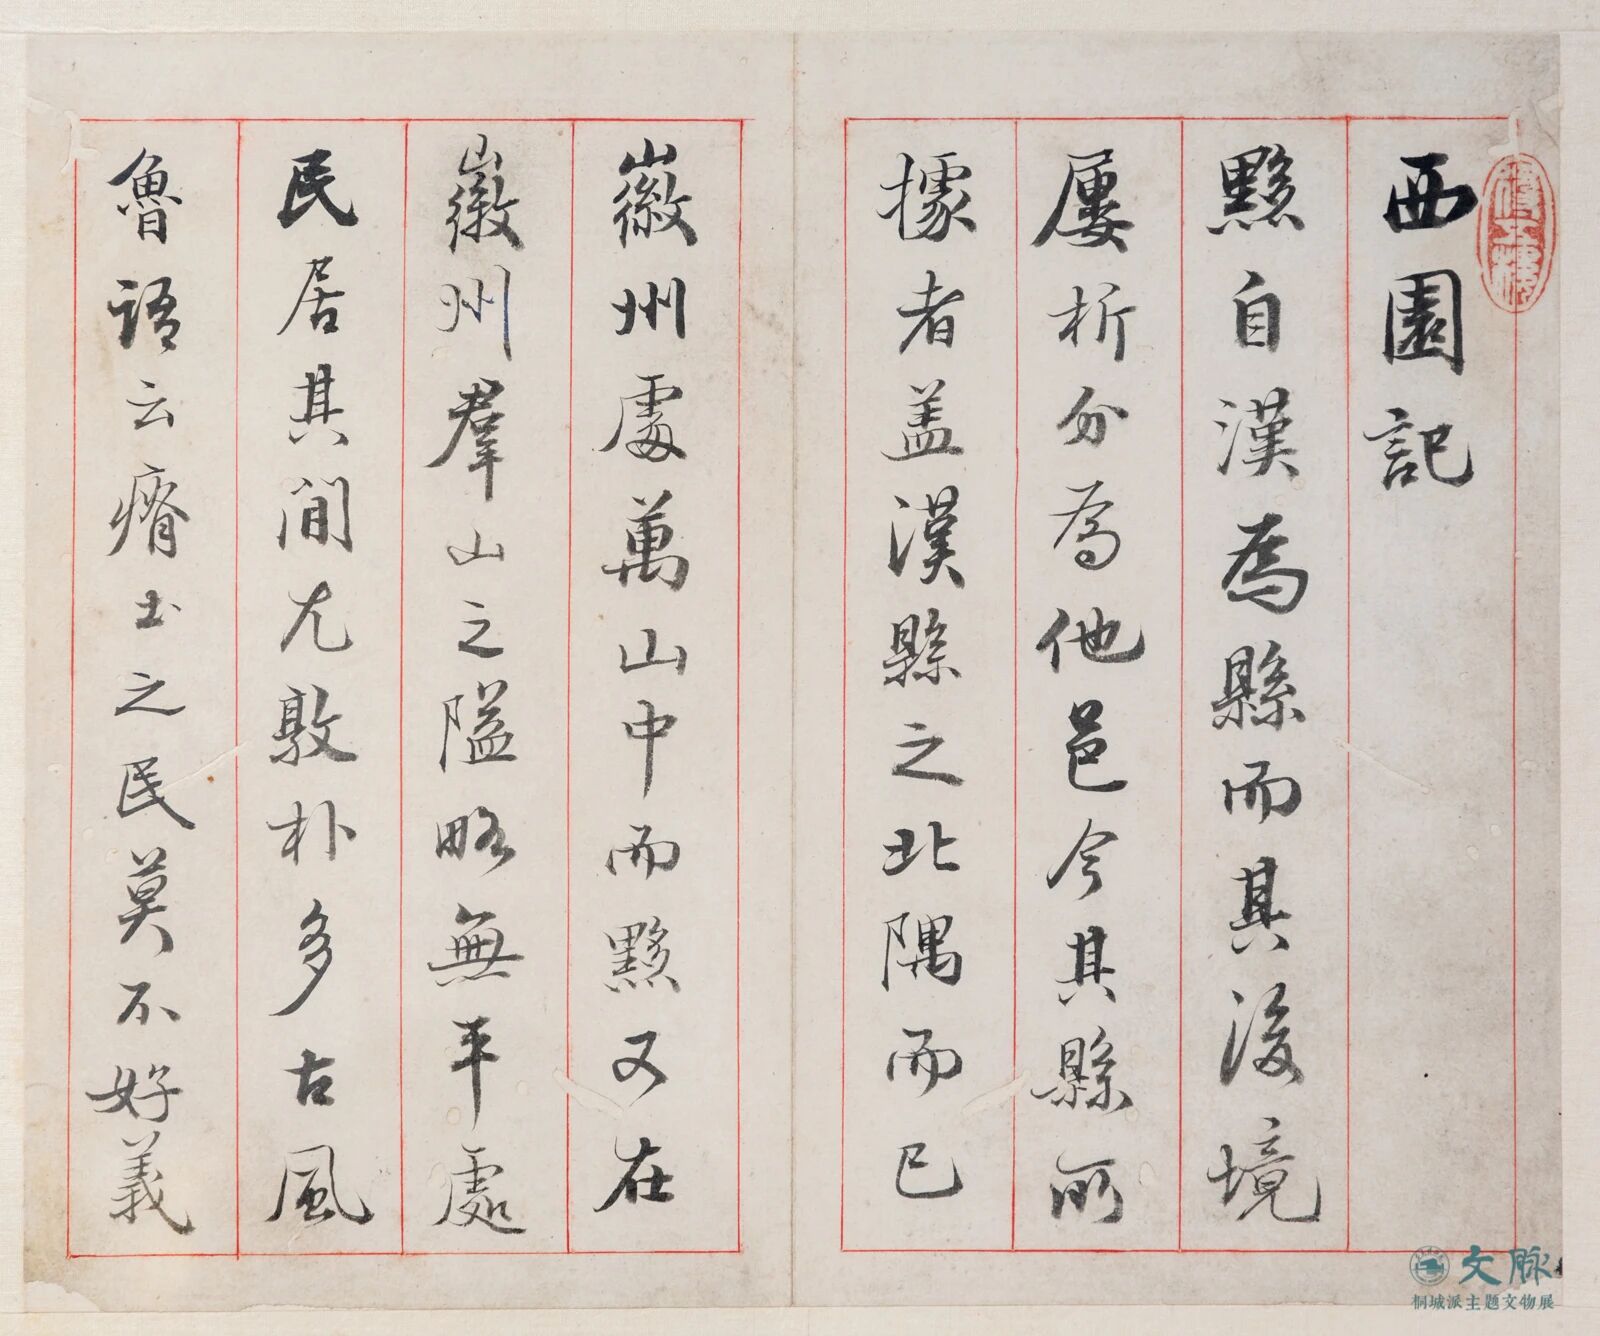 西園記
黟自漢為縣而其後境
屢析分為他邑今其縣所
據者盖漢縣之北隅而已
徽州處萬山中而黟又在
徽州羣山之隘略無平處
民居其間尤敦朴多古風
魯語云瘠土之民莫不好義
文脉
桐城派主题文物展